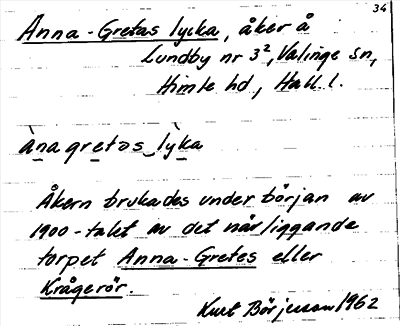 34
Anna-Gretas lycka, åker å
Lundby nr 3², Valinge sn,
Himle hd, Hall. l.
ànagretas lỳka
Åkern brukades under början av
1900-talet av det närliggande
torpet Anna-Gretes eller
Krågerör.
Kurt Börjesson 1962